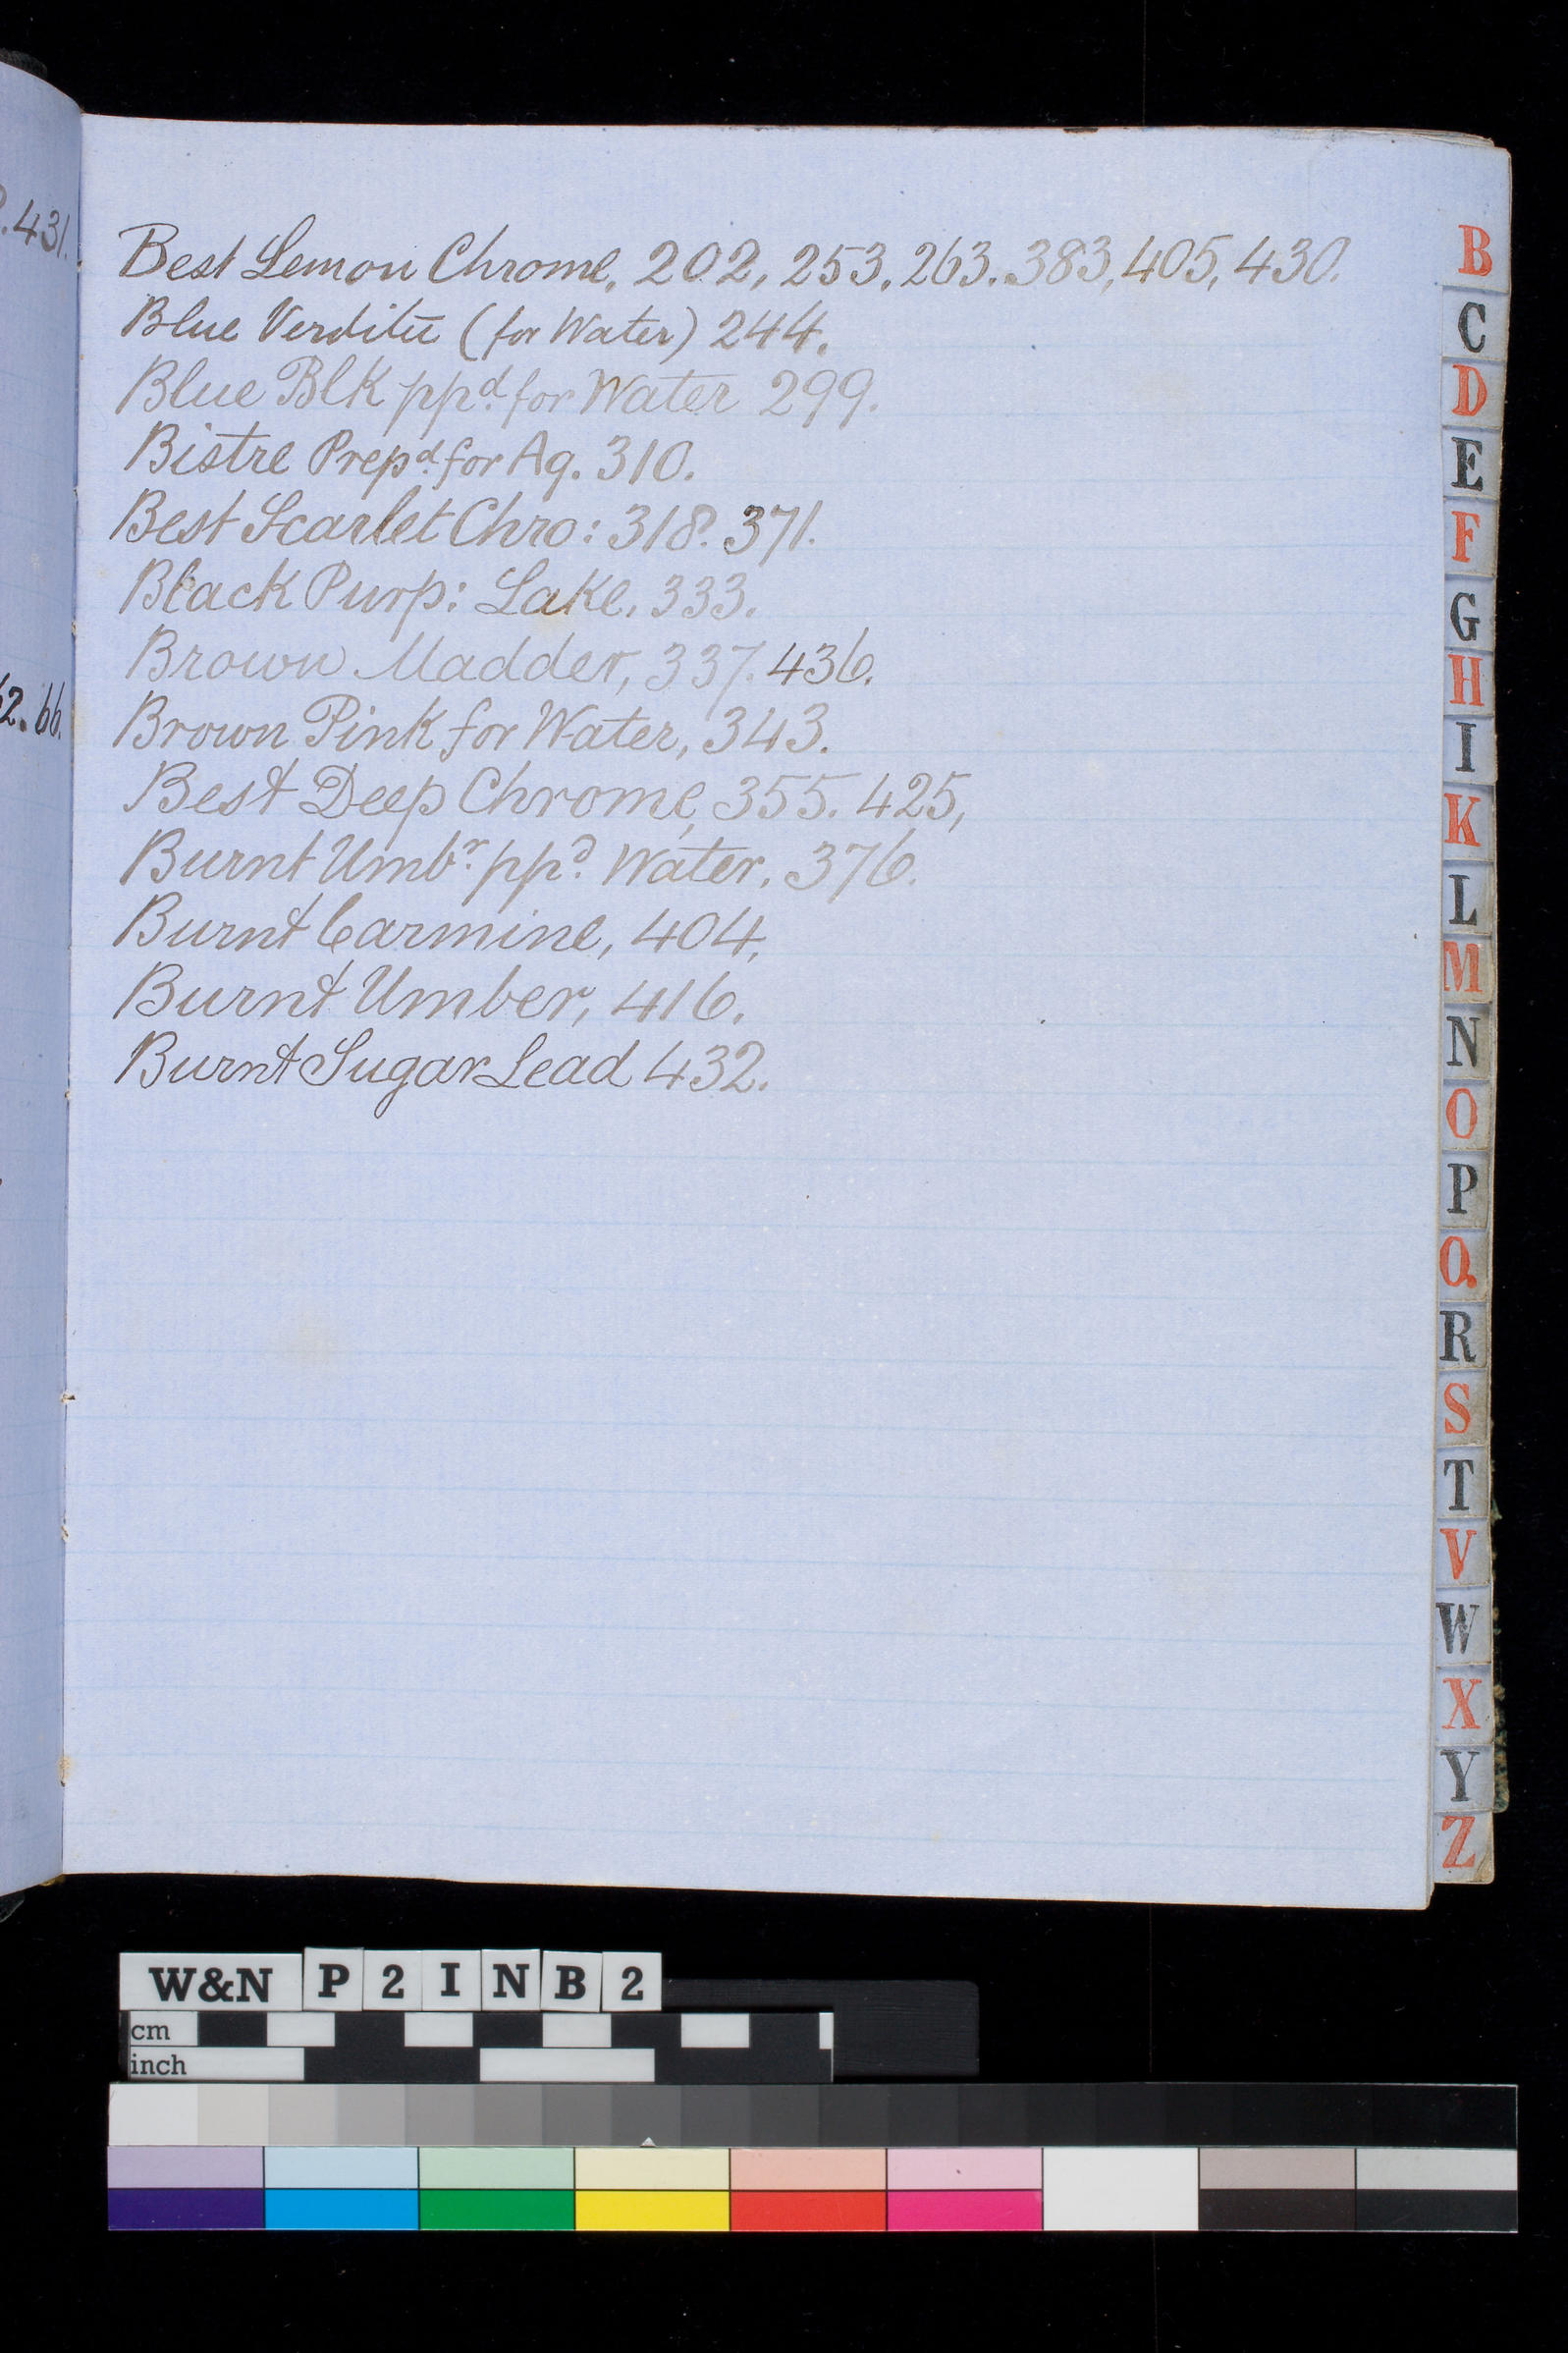 .431.
Best Lemon Chrome, 202, 253, 263. 383, 405, 430.
Blue (for Water) 244.
Blue Blk ppd. for Water 299.
Bistre Prepd. for Aq. 310.
Best Scarlet Chro: 318. 371.
Black Purp: Lake, 333.
2. 66.
Brown Madder, 337. 436.
Brown Pink for Water, 343.
Best Deep Chrome, 355. 425,
Burnt Umbr. ppd. Water, 376.
Burnt Carmine, 404,
Burnt Umber, 416.
Burnt Sugar Lead 432.
B
C
D
E
F
G
H
I
K
L
M
N
O
P
Q.
R
S
T
V
W
X
Y
Z
W&N P 2 I N B 2
cm
inch